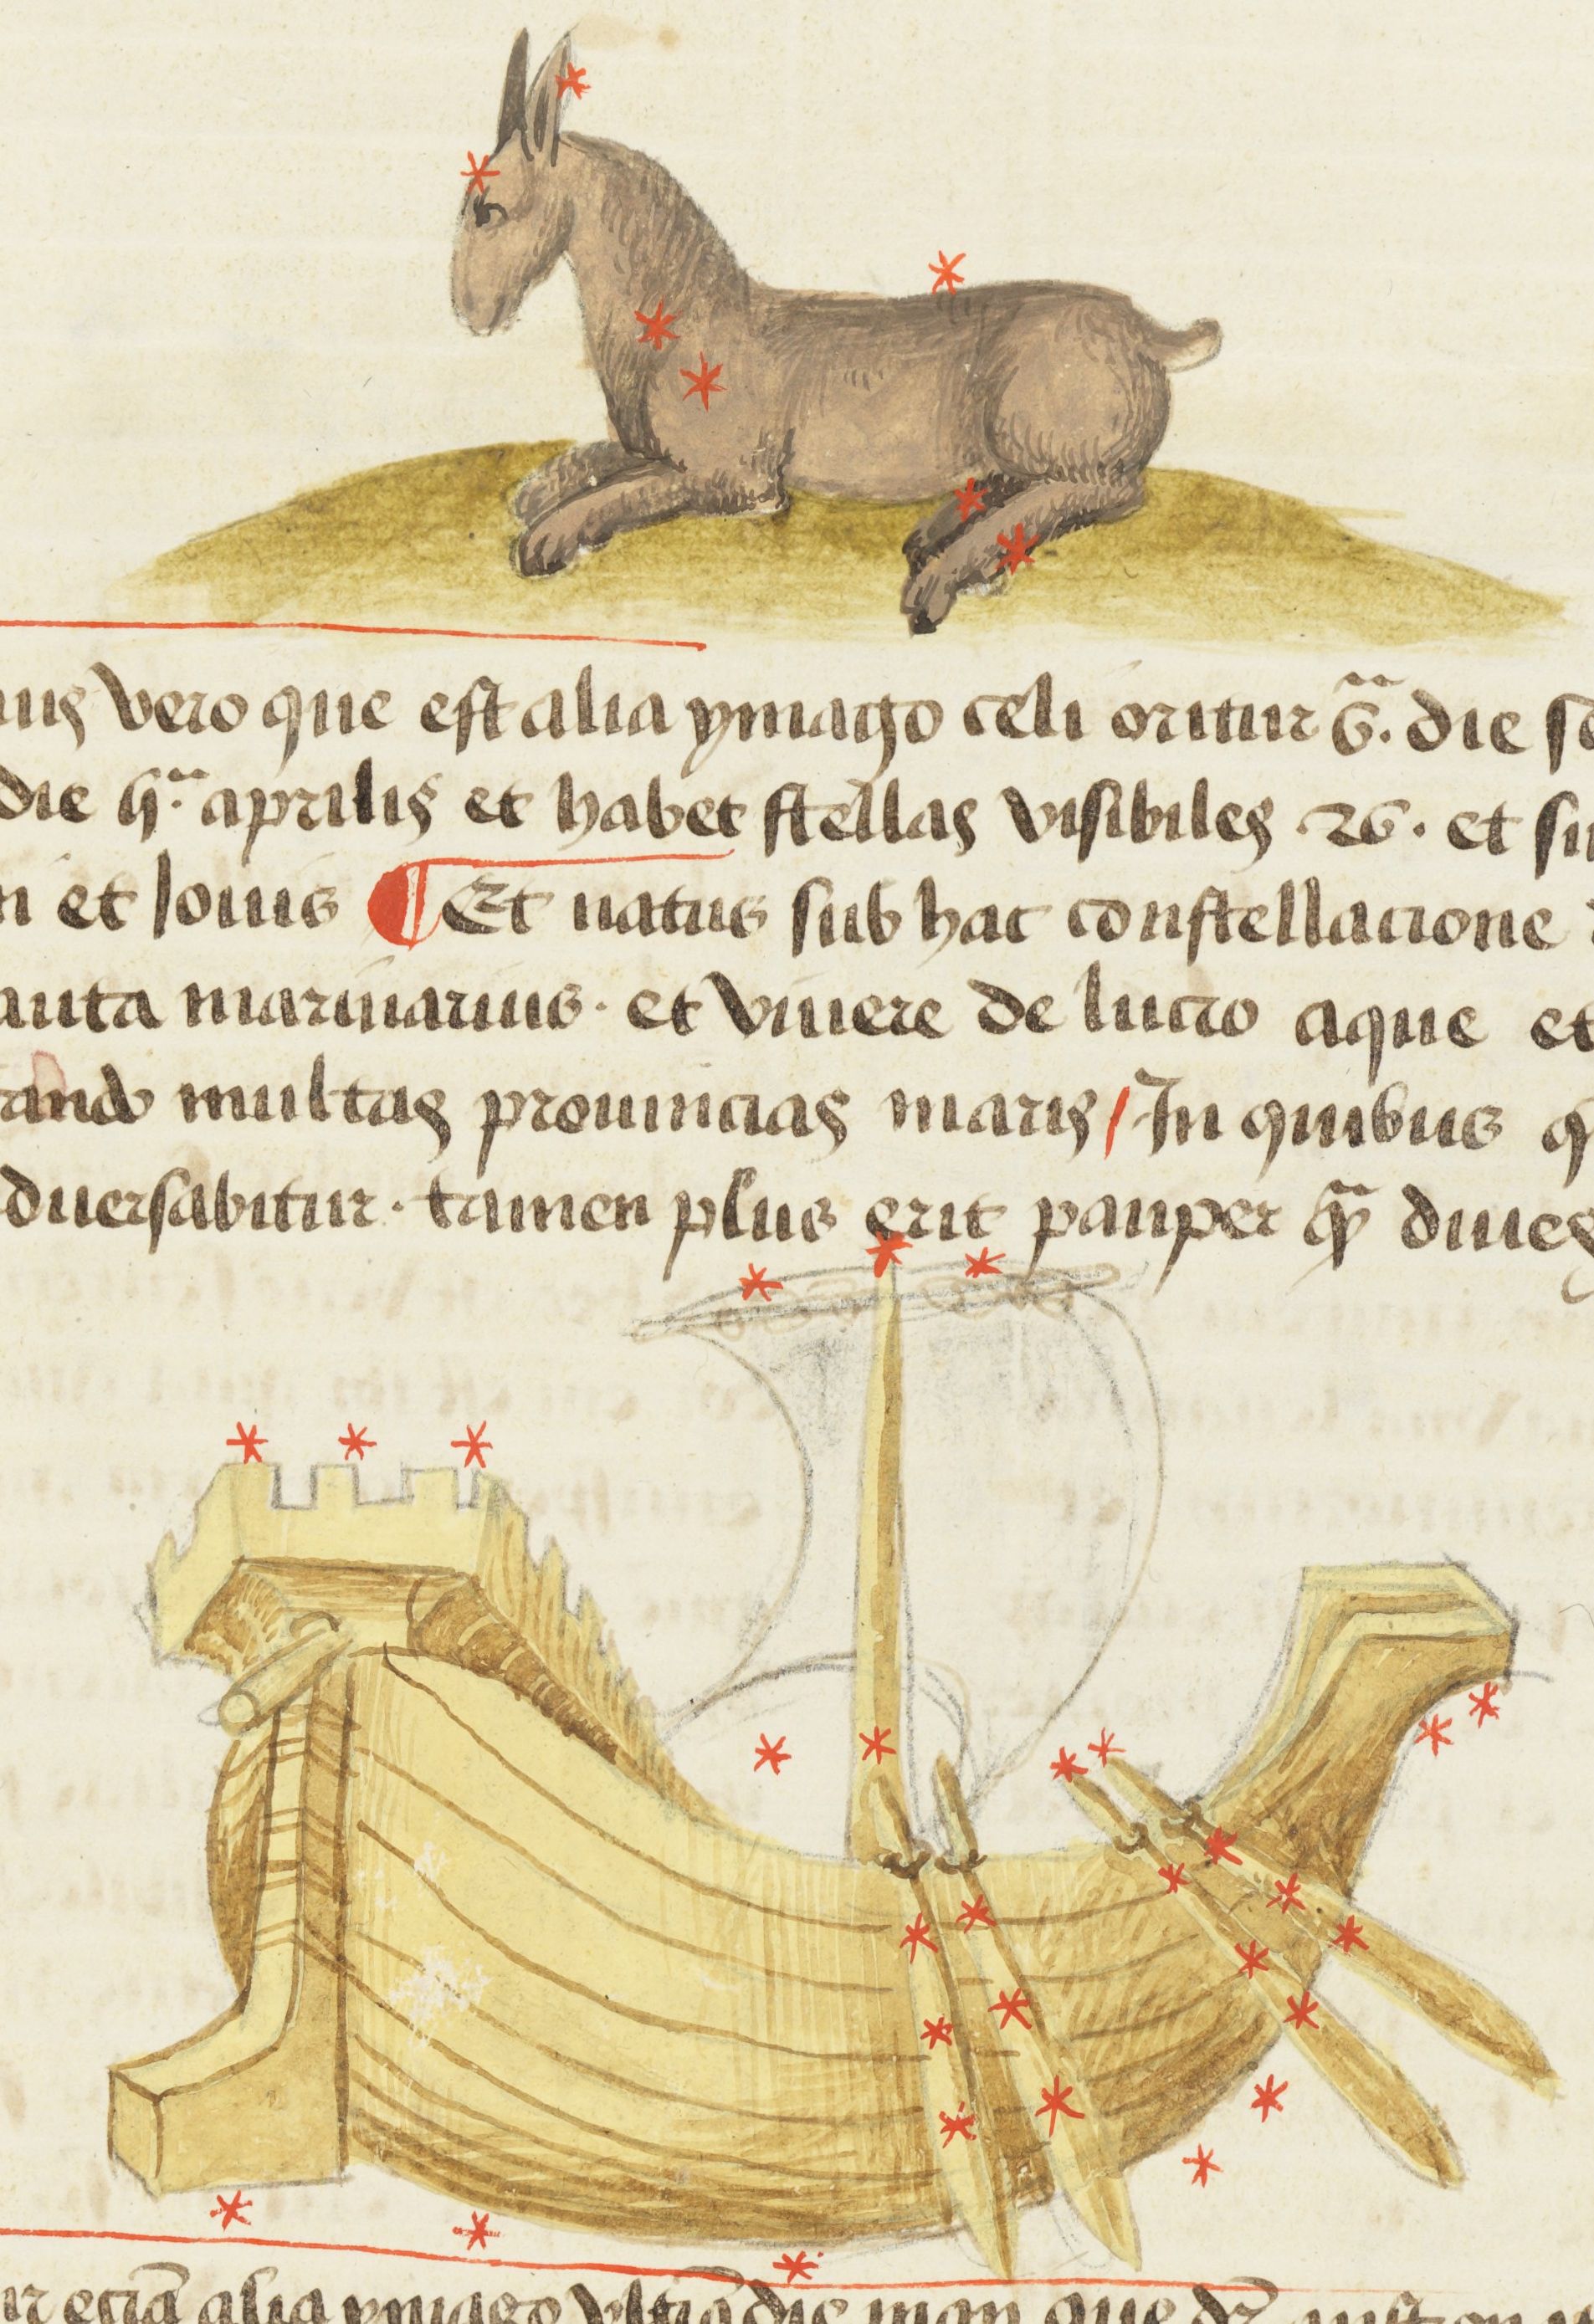 vero que est alia ymago celi oritur 6.ª die
die 4.ª aprilis et habet stellas visibiles .26. et
et Iouis ¶ Et natus sub hac constellacione
marinarius. et viuere de lucro aque et
multas prouincias maris / In quibus
tamen plus erit pauper qͣ diues
alia ymago